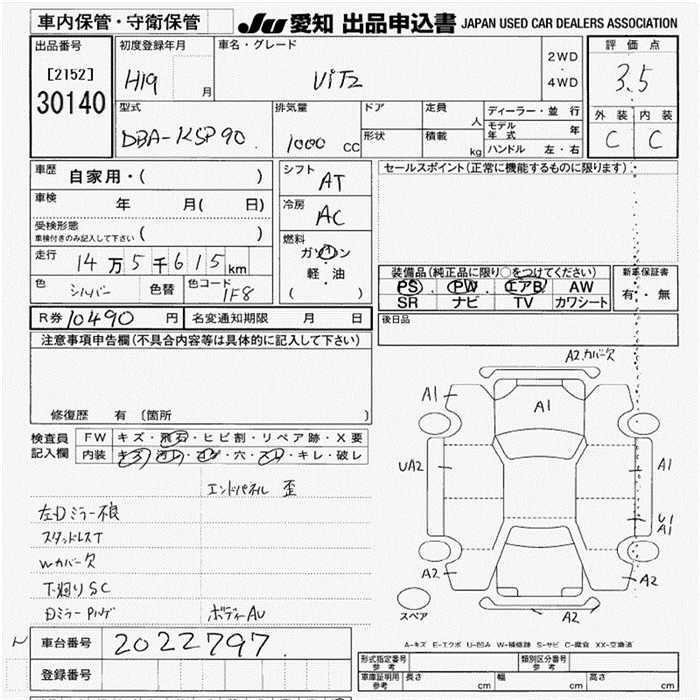 車内保管・守衛保管
JU 愛知 出品申込書 JAPAN USED CAR DEALERS ASSOCIATION
出品番号
[2152]
30140
初度登録年月
H19 月
車名・グレード
ViTz
2WD
・
4WD
評価点
3.5
外装 内装
C C
型式
DBA-KSP90
排気量
1000 CC
ドア
形状
定員 人
積載 kg
ディーラー・並行
モデル年式 年
ハンドル 左・右
車歴 自家用・( )
車検 年 月( 日)
受検形態
車検付きのみ記入して下さい ( )
走行 14万5千615km
色 シルバー 色替 色コード 1F8
シフト AT
冷房 AC
燃料
ガソリン
軽・油
( )
セールスポイント(正常に機能するものに限ります)
装備品(純正品に限り○をつけてください)
PS PW エアB AW
SR ナビ TV カワシート
新車保証書
有・無
R券 10490 円 名変通知期限 月 日
後日品
注意事項申告欄(不具合内容等は具体的に記入して下さい)
修復歴 有 (箇所 )
検査員記入欄
FW キズ・飛石・ヒビ割・リペア跡・X要
内装 キズ・汚レ・コゲ・穴・スレ・キレ・破レ
エンドパネル 歪
左Dミラー不良
スタッドレスT
Wカバー欠
下廻りSC
Dミラー ボディーAU
A2.カバー欠
A1
A1
UA2
A1
U1
A1
A2
A2
A2
スペア
A-キズ E-エクボ U-凹み W-補修跡 S-サビ C-腐食 XX-交換済
車台番号 2022797
登録番号
形式指定番号 参考 類別区分番号 参考
車庫証明用 参考 長さ cm 幅 cm 高さ cm